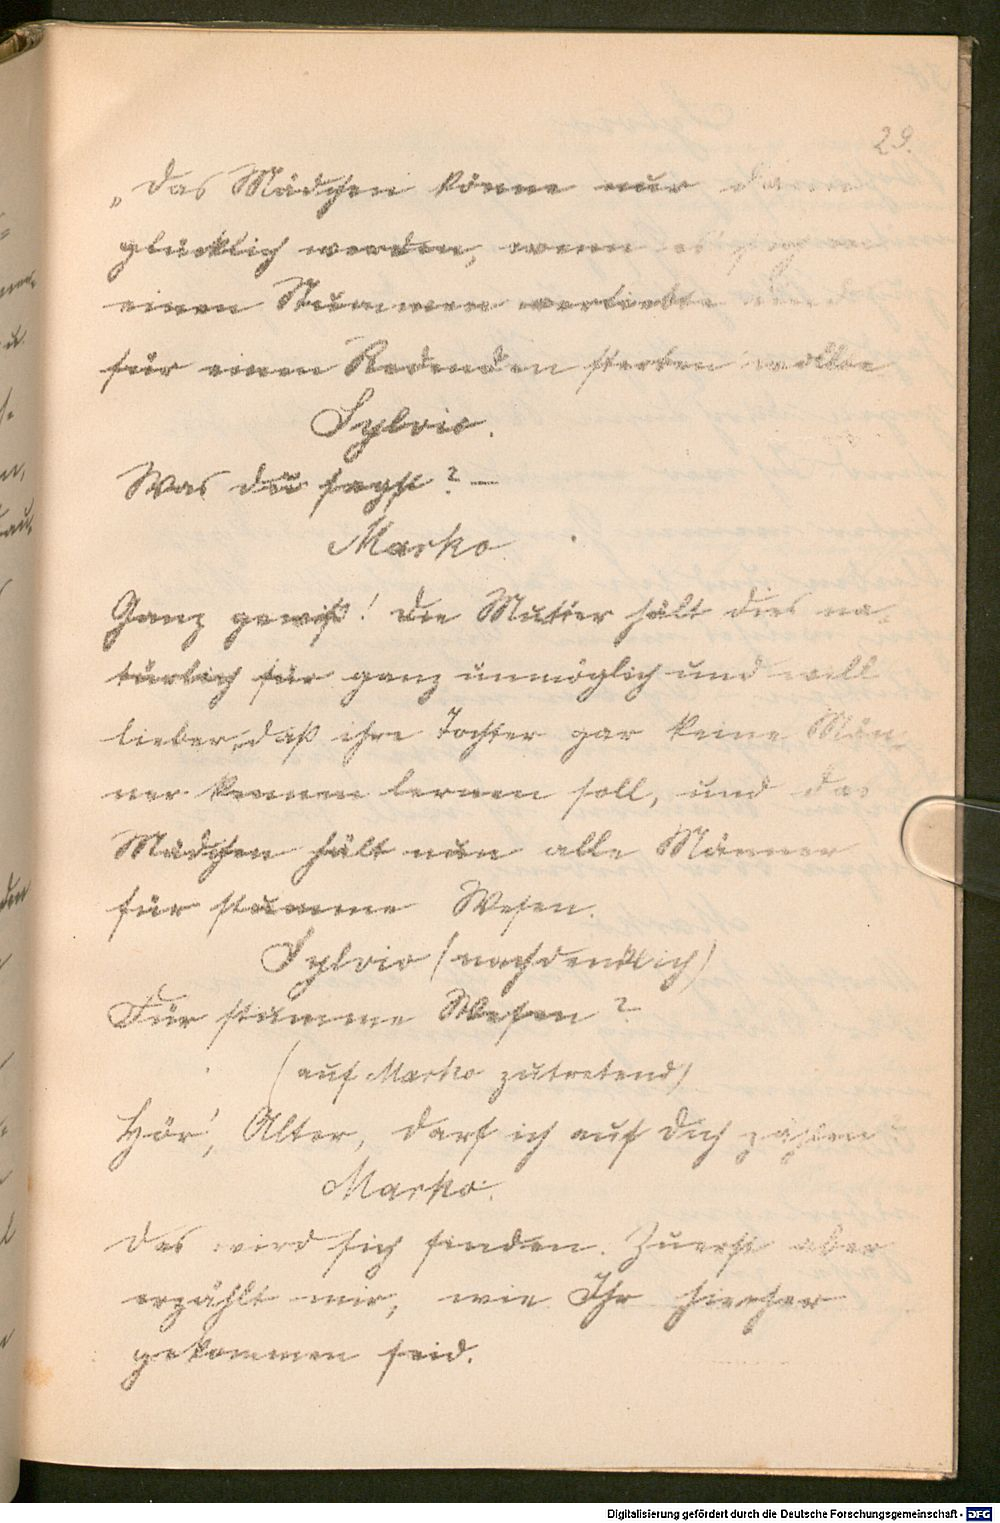 29.
„Das Mädchen könne nur dann
glücklich werden, wenn es sich in
einen Stummen verliebte und
für einen Redenden sterben wollte
Sylvio.
Was du sagst? —
Marko
Ganz gewiß! Die Mutter hält dies na-
türlich für ganz unmöglich und will
lieber, daß ihre Tochter gar keine Män-
ner kennen lernen soll, und das
Mädchen hält nun alle Männer
für stumme Wesen.
Sylvio (nachdenklich)
Für stumme Wesen?
(auf Marko zutretend)
Hör', Alter, darf ich auf dich zählen
Marko.
Das wird sich finden. Zuerst aber
erzählt mir, wie Ihr hierher
gekommen seid.
Digitalisierung gefördert durch die Deutsche Forschungsgemeinschaft - DFG